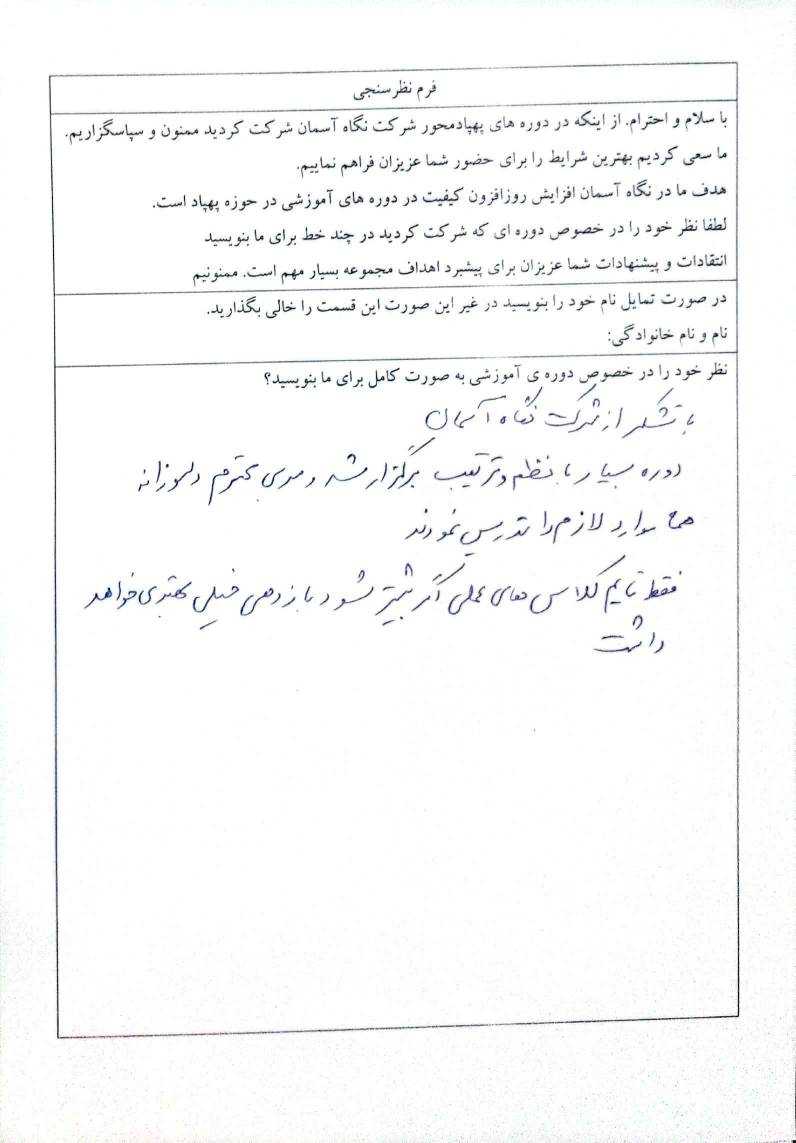 فرم نظرسنجی
با سلام و احترام. از اینکه در دوره های پهپادمحور شرکت نگاه آسمان شرکت کردید ممنون و سپاسگزاریم.
ما سعی کردیم بهترین شرایط را برای حضور شما عزیزان فراهم نماییم.
هدف ما در نگاه آسمان افزایش روزافزون کیفیت در دوره های آموزشی در حوزه پهپاد است.
لطفا نظر خود را در خصوص دوره ای که شرکت کردید در چند خط برای ما بنویسید
انتقادات و پیشنهادات شما عزیزان برای پیشبرد اهداف مجموعه بسیار مهم است. ممنونیم
در صورت تمایل نام خود را بنویسید در غیر این صورت این قسمت را خالی بگذارید.
نام و نام خانوادگی:
نظر خود را در خصوص دوره ی آموزشی به صورت کامل برای ما بنویسید؟
با تشکر از شرکت نگاه آسمان
دوره بسیار با نظم و ترتیب برگزار شد و مربی محترم دلسوزانه
همه موارد لازم را تدریس نمودند
فقط تایم کلاس های عملی اگر بیشتر شود بازدهی خیلی بهتری خواهد
داشت